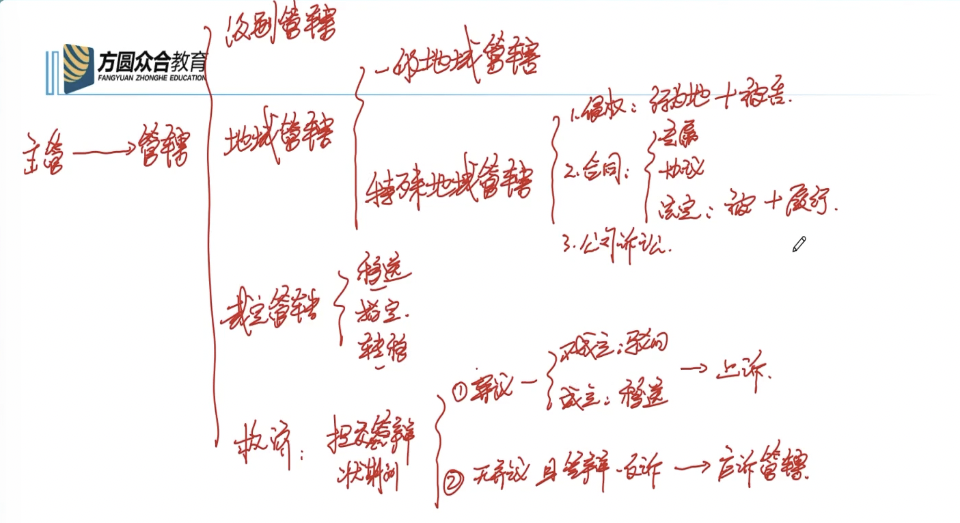 方圆众合教育
FANGYUAN ZHONGHE EDUCATION
主管 → 管辖
级别管辖
地域管辖
一般地域管辖
特殊地域管辖
1.侵权：行为地+被告.
2.合同：
专属
协议
法定：被+履行.
3.公司诉讼.
裁定管辖
移送
指定.
转移
救济：提交答辩
状期间
①异议
不成立：驳回
成立：移送
→ 上诉.
②无异议且答辩、反诉 → 应诉管辖.